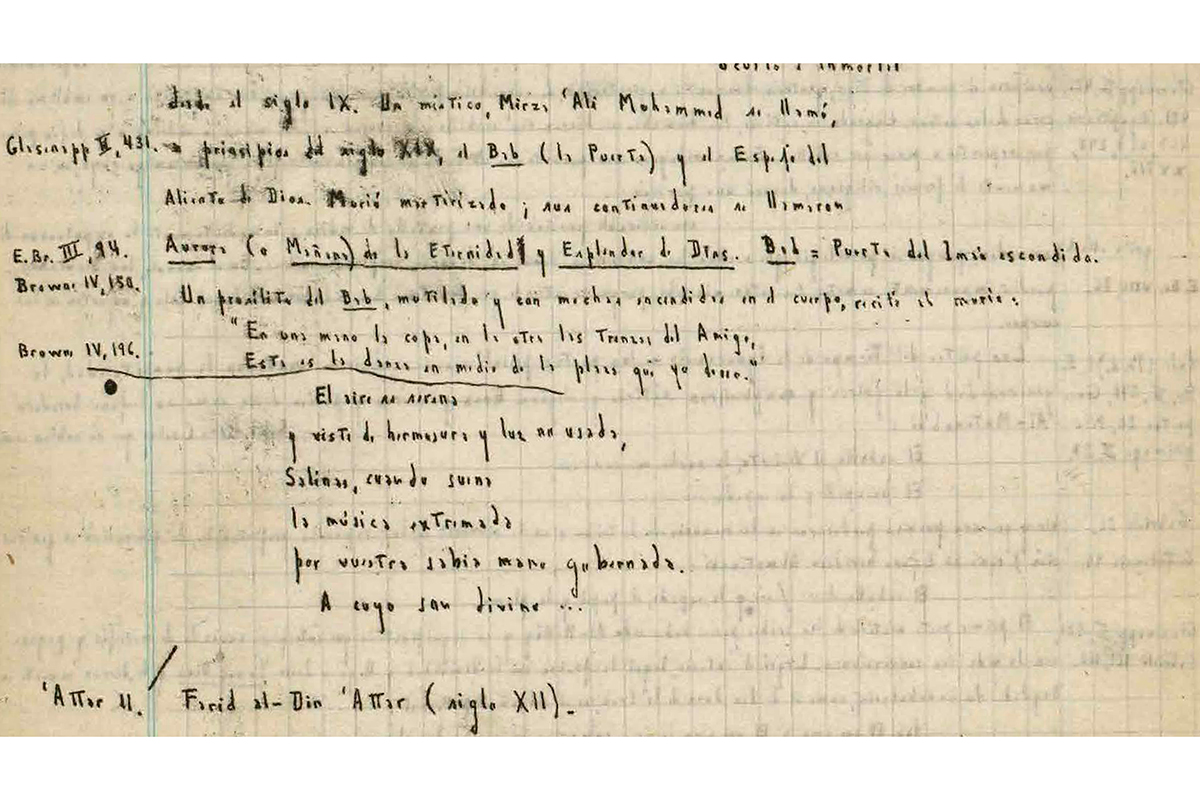 oculto e inmortal
desde el siglo IX. Un místico, Mirza 'Ali Mohammed se llamó,
Glasenapp II, 431. a principios del siglo XIX, el Bab (la Puerta) y el Espejo del
Aliento de Dios. Murió martirizado; sus continuadores se llamaron
E. Br. III, 94. Aurora (o Mañana) de la Eternidad y Esplendor de Dios. Bab = Puerta del Imán escondido.
Browne IV, 150. Un prosélito del Bab, mutilado y con mechas encendidas en el cuerpo, recitó al morir:
"En una mano la copa, en la otra las trenzas del Amigo,
Browne IV, 196. Esta es la danza en medio de la plaza que yo deseo."
El aire se serena
y viste de hermosura y luz no usada,
Salinas, cuando suena
la música extremada
por vuestra sabia mano gobernada.
A cuyo son divino ...
'Attar 11. Farid al-Din 'Attar (siglo XII).